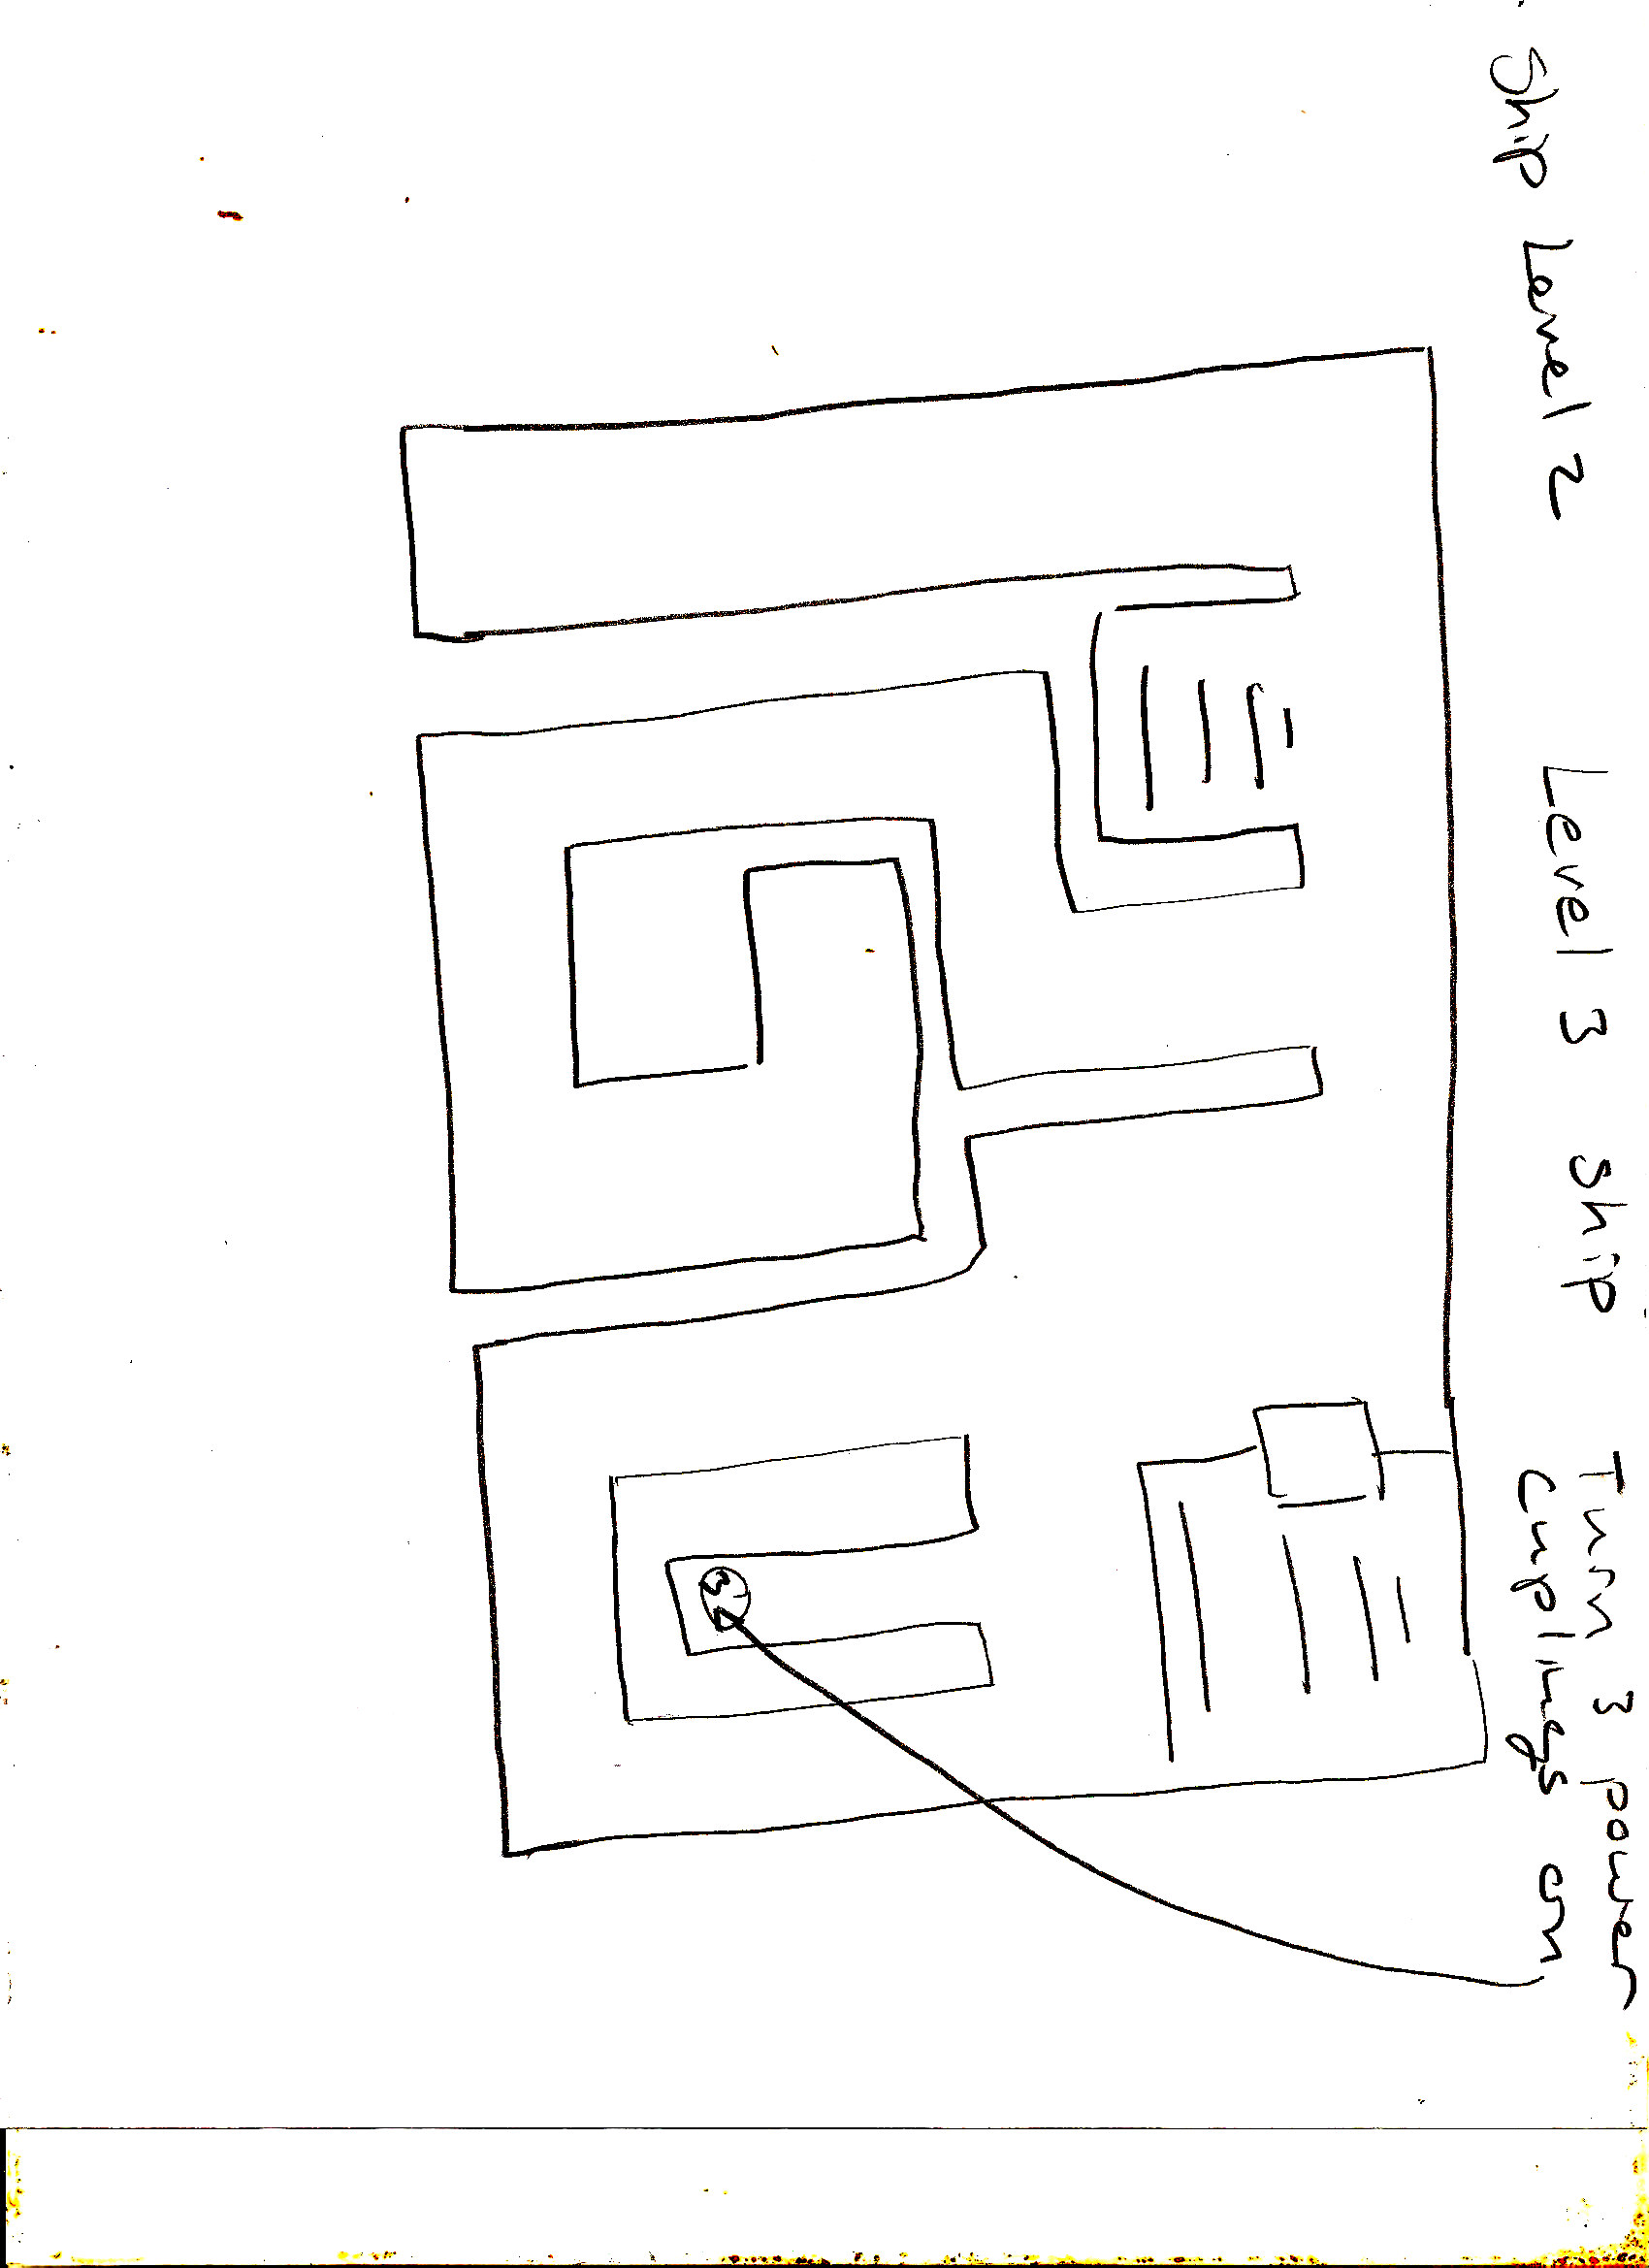 Ship Level 2 Level 3 ship Turn 3 power
cuplings on
3